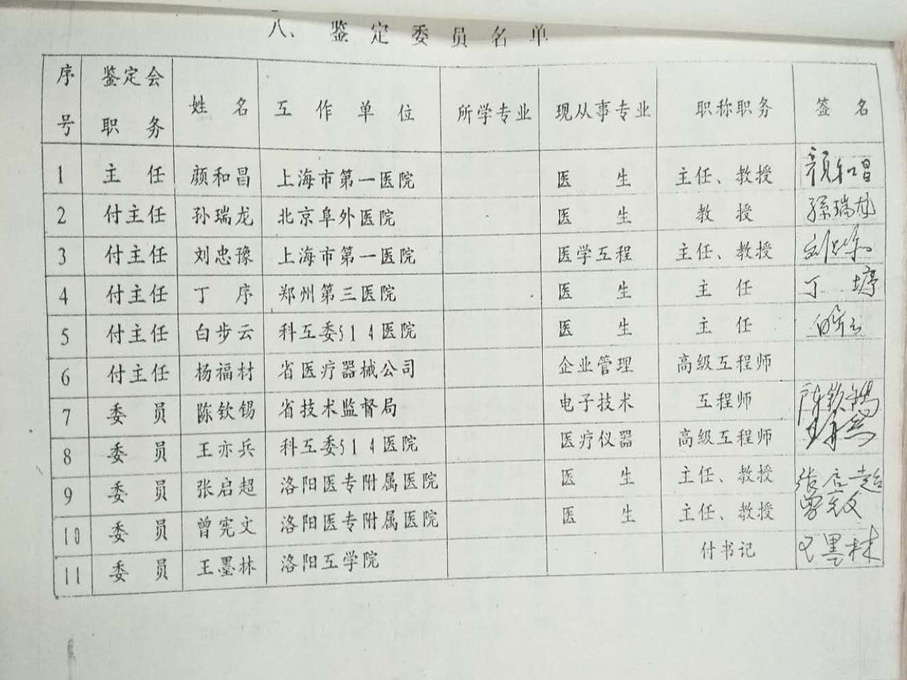 八、鉴定委员名单
序号 鉴定会职务 姓名 工作单位 所学专业 现从事专业 职称职务 签名
1 主任 颜和昌 上海市第一医院 医生 主任、教授 颜和昌
2 付主任 孙瑞龙 北京阜外医院 医生 教授 孫瑞龙
3 付主任 刘忠豫 上海市第一医院 医学工程 主任、教授
4 付主任 丁序 郑州第三医院 医生 主任
5 付主任 白步云 科工委514医院 医生 主任
6 付主任 杨福材 省医疗器械公司 企业管理 高级工程师
7 委员 陈钦锡 省技术监督局 电子技术 工程师 陈钦锡
8 委员 王亦兵 科工委514医院 医疗仪器 高级工程师
9 委员 张启超 洛阳医专附属医院 医生 主任、教授 张启超
10 委员 曾宪文 洛阳医专附属医院 医生 主任、教授
11 委员 王墨林 洛阳工学院 付书记 王墨林